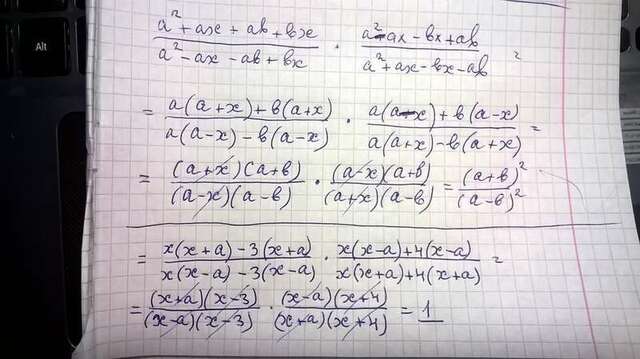 Alt
(a² + ax + ab + bx)/(a² - ax - ab + bx) · (a² - ax - bx + ab)/(a² + ax - bx - ab) =
= (a(a+x) + b(a+x))/(a(a-x) - b(a-x)) · (a(a-x) + b(a-x))/(a(a+x) - b(a+x)) =
= ((a+x)(a+b))/((a-x)(a-b)) · ((a-x)(a+b))/((a+x)(a-b)) = (a+b)²/(a-b)²
= (x(x+a) - 3(x+a))/(x(x-a) - 3(x-a)) · (x(x-a) + 4(x-a))/(x(x+a) + 4(x+a)) =
= ((x+a)(x-3))/((x-a)(x-3)) · ((x-a)(x+4))/((x+a)(x+4)) = 1